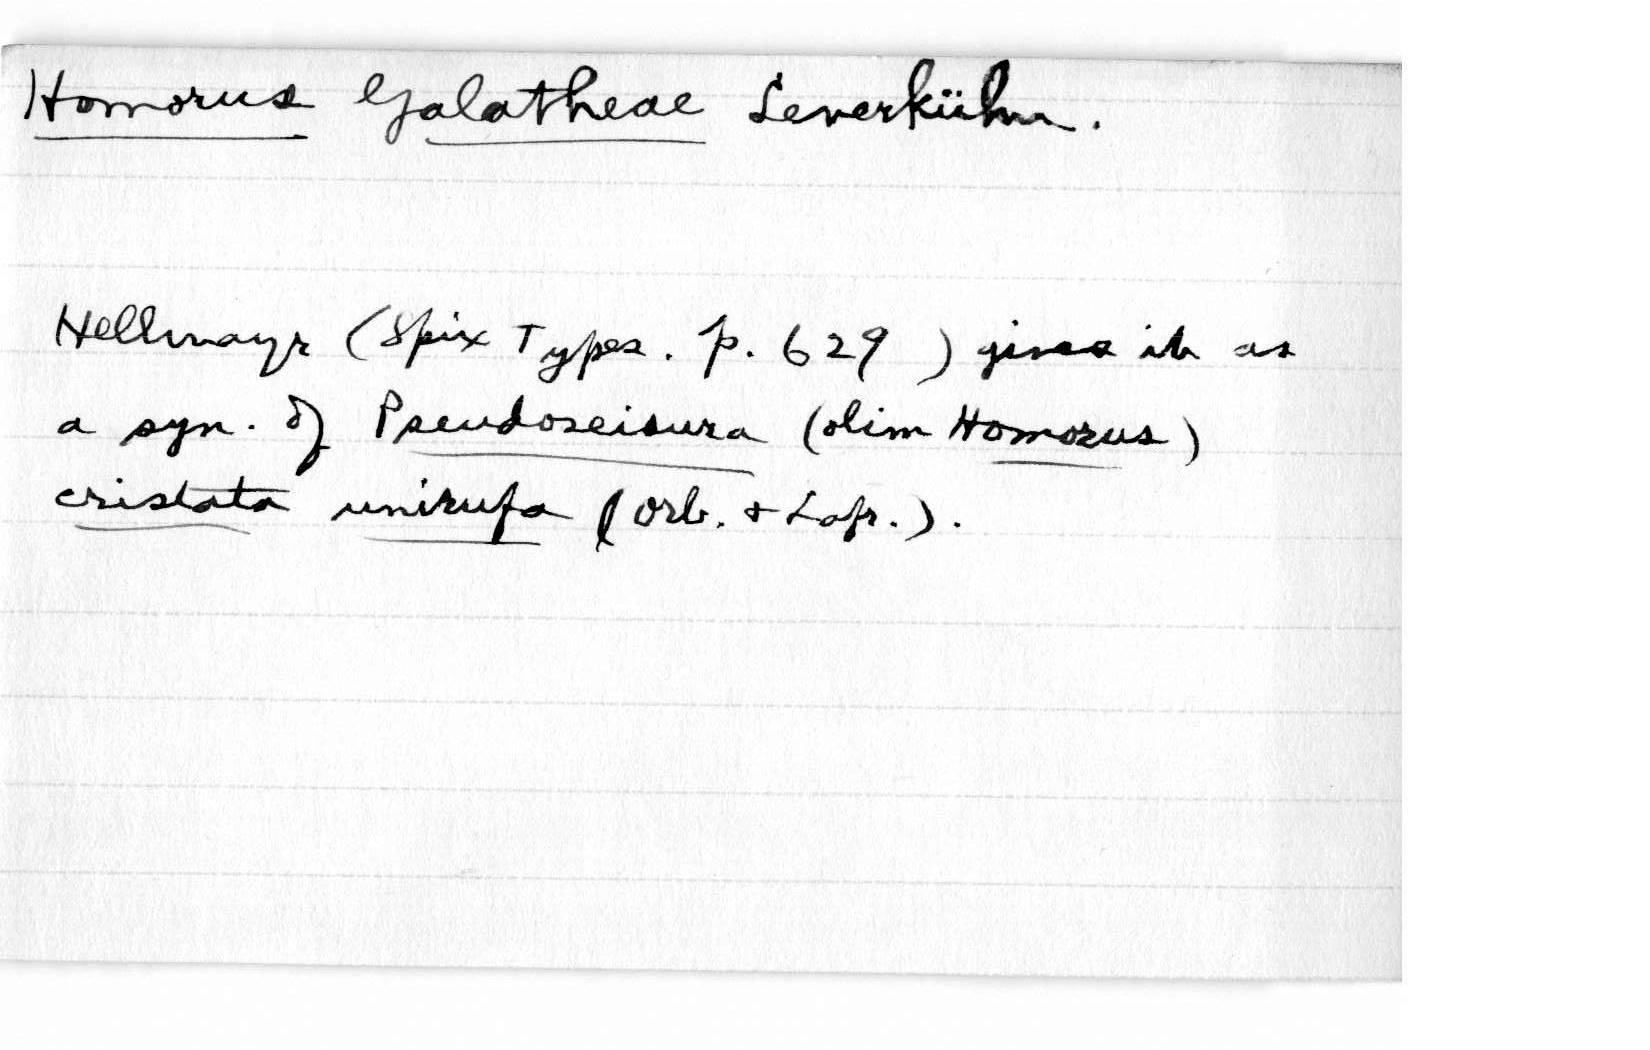 Homorus Galatheae Leverkühn.
Hellmayr (Spix Types. p. 629) gives it as
a syn. of Pseudoseisura (olim Homorus)
cristata unirufa (Orb. & Lafr.).